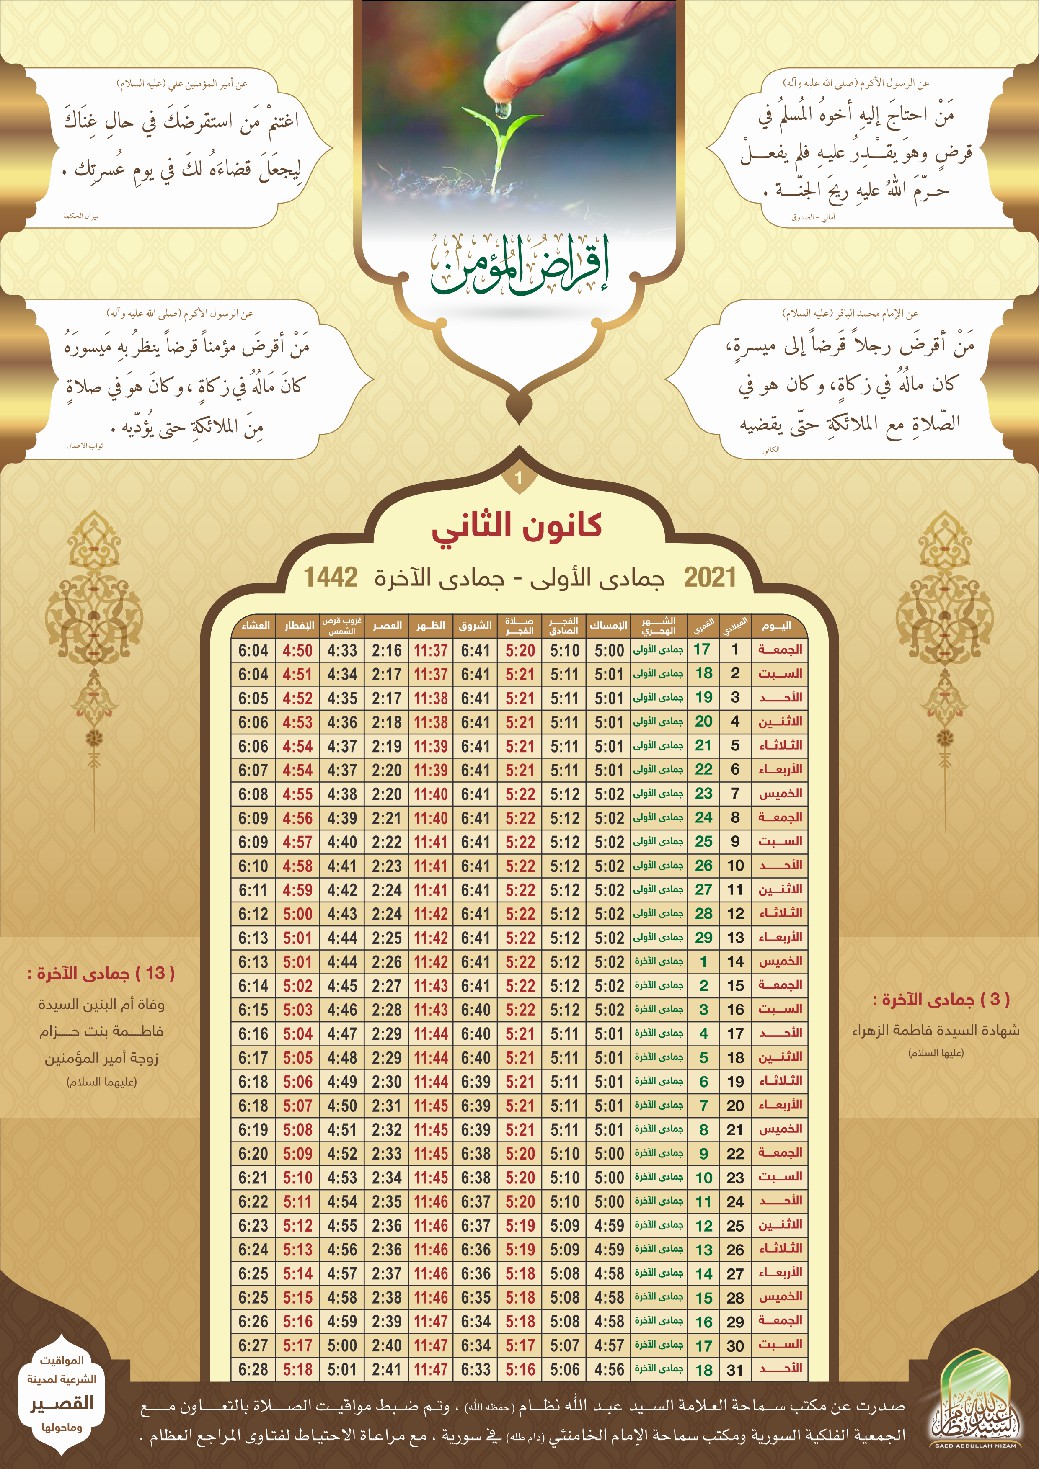 عن الرسول الأكرم (صلى الله عليه وآله)
مَنْ احتاجَ إليهِ أخوهُ المُسلمُ في
قرضٍ وهوَ يقْـدِرُ عليـهِ فلم يفعـلْ
حـرّمَ اللهُ عليهِ ريحَ الجنّـة .
أمالي - الصدوق
عن أمير المؤمنين علي (عليه السلام)
اغتنمْ مَن استقرضَكَ في حالِ غِنَاكَ
لِيجعَلَ قضاءَه لكَ في يومِ عُسرتِك .
ميزان الحكمة
إقراضُ المُؤمن
عن الإمام محمد الباقر (عليه السلام)
مَنْ أقرضَ رجلاً قَرضاً إلى ميسرةٍ،
كان مالُهُ في زكاةٍ، وكان هو في
الصّلاةِ مع الملائكةِ حتّى يقضيه
الكافي
عن الرسول الأكرم (صلى الله عليه وآله)
مَنْ أقرضَ مؤمناً قرضاً ينظرُ بهِ مَيسورَهُ
كانَ مَالُهُ في زكاةٍ ، وكانَ هوَ في صلاةٍ
مِنَ الملائكةِ حتى يُؤدّيه .
ثواب الأعمال
1
كانون الثاني
2021 جمادى الأولى - جمادى الآخرة 1442
اليـوم الميلادي القمري الشـهر الهجري الإمساك الفجـر الصادق صـلاة الفجـر الشروق الظـهر العصـر غروب قرص الشمس الإفطار العشاء
الجمعـة 1 17 جمادى الأولى 5:00 5:10 5:20 6:41 11:37 2:16 4:33 4:50 6:04
السـبت 2 18 جمادى الأولى 5:01 5:11 5:21 6:41 11:37 2:17 4:34 4:51 6:04
الأحـــد 3 19 جمادى الأولى 5:01 5:11 5:21 6:41 11:38 2:17 4:35 4:52 6:05
الاثنـين 4 20 جمادى الأولى 5:01 5:11 5:21 6:41 11:38 2:18 4:36 4:53 6:06
الثلاثـاء 5 21 جمادى الأولى 5:01 5:11 5:21 6:41 11:39 2:19 4:37 4:54 6:06
الأربعـاء 6 22 جمادى الأولى 5:01 5:11 5:21 6:41 11:39 2:20 4:37 4:54 6:07
الخميس 7 23 جمادى الأولى 5:02 5:12 5:22 6:41 11:40 2:20 4:38 4:55 6:08
الجمعـة 8 24 جمادى الأولى 5:02 5:12 5:22 6:41 11:40 2:21 4:39 4:56 6:09
السـبت 9 25 جمادى الأولى 5:02 5:12 5:22 6:41 11:41 2:22 4:40 4:57 6:09
الأحـــد 10 26 جمادى الأولى 5:02 5:12 5:22 6:41 11:41 2:23 4:41 4:58 6:10
الاثنـين 11 27 جمادى الأولى 5:02 5:12 5:22 6:41 11:41 2:24 4:42 4:59 6:11
الثلاثـاء 12 28 جمادى الأولى 5:02 5:12 5:22 6:41 11:42 2:24 4:43 5:00 6:12
الأربعـاء 13 29 جمادى الأولى 5:02 5:12 5:22 6:41 11:42 2:25 4:44 5:01 6:13
الخميس 14 1 جمادى الآخرة 5:02 5:12 5:22 6:41 11:42 2:26 4:44 5:01 6:13
الجمعـة 15 2 جمادى الآخرة 5:02 5:12 5:22 6:41 11:43 2:27 4:45 5:02 6:14
السـبت 16 3 جمادى الآخرة 5:02 5:12 5:22 6:40 11:43 2:28 4:46 5:03 6:15
الأحـــد 17 4 جمادى الآخرة 5:01 5:11 5:21 6:40 11:44 2:29 4:47 5:04 6:16
الاثنـين 18 5 جمادى الآخرة 5:01 5:11 5:21 6:40 11:44 2:29 4:48 5:05 6:17
الثلاثـاء 19 6 جمادى الآخرة 5:01 5:11 5:21 6:39 11:44 2:30 4:49 5:06 6:18
الأربعـاء 20 7 جمادى الآخرة 5:01 5:11 5:21 6:39 11:45 2:31 4:50 5:07 6:18
الخميس 21 8 جمادى الآخرة 5:01 5:11 5:21 6:39 11:45 2:32 4:51 5:08 6:19
الجمعـة 22 9 جمادى الآخرة 5:00 5:10 5:20 6:38 11:45 2:33 4:52 5:09 6:20
السـبت 23 10 جمادى الآخرة 5:00 5:10 5:20 6:38 11:45 2:34 4:53 5:10 6:21
الأحـــد 24 11 جمادى الآخرة 5:00 5:10 5:20 6:37 11:46 2:35 4:54 5:11 6:22
الاثنـين 25 12 جمادى الآخرة 4:59 5:09 5:19 6:37 11:46 2:36 4:55 5:12 6:23
الثلاثـاء 26 13 جمادى الآخرة 4:59 5:09 5:19 6:36 11:46 2:36 4:56 5:13 6:24
الأربعـاء 27 14 جمادى الآخرة 4:58 5:08 5:18 6:36 11:46 2:37 4:57 5:14 6:25
الخميس 28 15 جمادى الآخرة 4:58 5:08 5:18 6:35 11:46 2:38 4:58 5:15 6:25
الجمعـة 29 16 جمادى الآخرة 4:58 5:08 5:18 6:34 11:47 2:39 4:59 5:16 6:26
السـبت 30 17 جمادى الآخرة 4:57 5:07 5:17 6:34 11:47 2:40 5:00 5:17 6:27
الأحـــد 31 18 جمادى الآخرة 4:56 5:06 5:16 6:33 11:47 2:41 5:01 5:18 6:28
( 3 ) جمادى الآخرة :
شهادة السيدة فاطمة الزهراء
(عليها السلام)
( 13 ) جمادى الآخرة :
وفاة أم البنين السيدة
فاطـــمة بنت حـــزام
زوجة أمير المؤمنين
(عليهما السلام)
المواقيت
الشرعية لمدينة
القصـير
وماحولها
صدرت عن مكتب سماحة العلامة السيد عبد الله نظـام (حفظه الله) ، وتـم ضبـط مواقيـت الصـلاة بالتعـاون مـع
الجمعية الفلكية السورية ومكتب سماحة الإمام الخامنئي (دام ظله) في سورية ، مع مراعاة الاحتياط لفتاوى المراجع العظام .
SAED ABDULLAH NIZAM